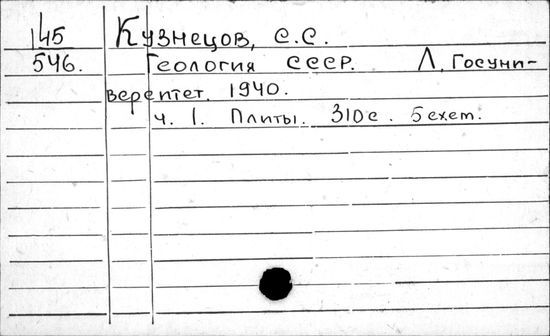 145 Кузнецов, С.С.
546. Геология СССР. Л. Госуни-
верситет. 1940.
ч. 1. Плиты. 310 с. 5 схем.